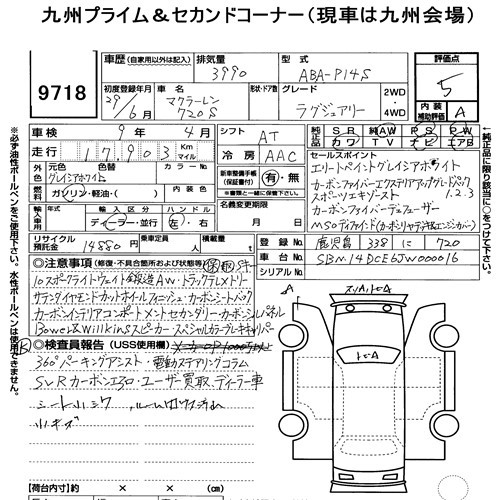 九州プライム&セカンドコーナー(現車は九州会場)
9718
車歴 (自家用以外は記入)
排気量 3990
型式 ABA-P14S
評価点 5
内装補助評価 A
初度登録年月 29年6月
車名 マクラーレン 720S
形状・ドア数
グレード ラグジュアリー
2WD・4WD
車検 9年4月
シフト AT
純正品 SR AW PS PW カワ TV ナビ エアB
走行 17,903 Km マイル
冷房 AAC
セールスポイント
エリートペイントグレイシアホワイト
カーボンファイバーエクステリアアップグレードパック1.2.3
スポーツエキゾースト
カーボンファイバーデュフューザー
MSOディファインド(カーボンリヤデッキ&エンジンカバー)
外色 元色 グレイシアホワイト 色替 カラーNo.
新車整備手帳(保証書付) 有・無
燃料 ガソリン・軽油・( )
名義変更期限 月 日
輸入車 年モデル 輸入区分 ディーラー・並行 ハンドル 左・右
リサイクル預託金 14880円
乗車定員 人
積載量 t
登録No. 鹿児島 338 に 720
車台No. SBM14DCE6JW000016
シリアルNo.
◎注意事項 (修復・不具合箇所および状態等)
10スポークライトウェイト鍛造AW・トラックテレメトリー
サテンダイヤモンドカットホイールフィニッシュ・カーボンシートバック
カーボンインテリアコンポーネントセンタリー・カーボンシルパネル
Bower&Wilkinsスピーカー・スペシャルカラーブレーキキャリパー
◎検査員報告 (USS使用欄)
360°パーキングアシスト・電動ステアリングコラム
SVRカーボンエアロ・ユーザー買取、ディーラー車
シートハシク
小キズ
【荷台内寸】 × × (cm)
※必ず油性ボールペンをご使用下さい。水性ボールペンは使用できません。
←純正品に限り該当に○をして下さい。
A